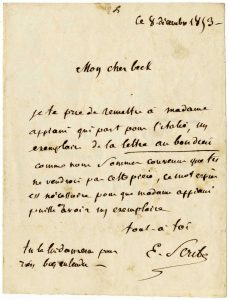 ce 8 décembre 1853 -
Mon cher beck
je te prie de remettre à madame
qui part pour l'italie, un
exemplaire de la lettre au boudoir
comme nous sommes convenus que tu
ne vendrois pas cette pièce, ce mot
est nécessaire pour que madame
puisse avoir un exemplaire
tout à toi
E. Scribe
tu le lui donneras pour
rien bien entendu -